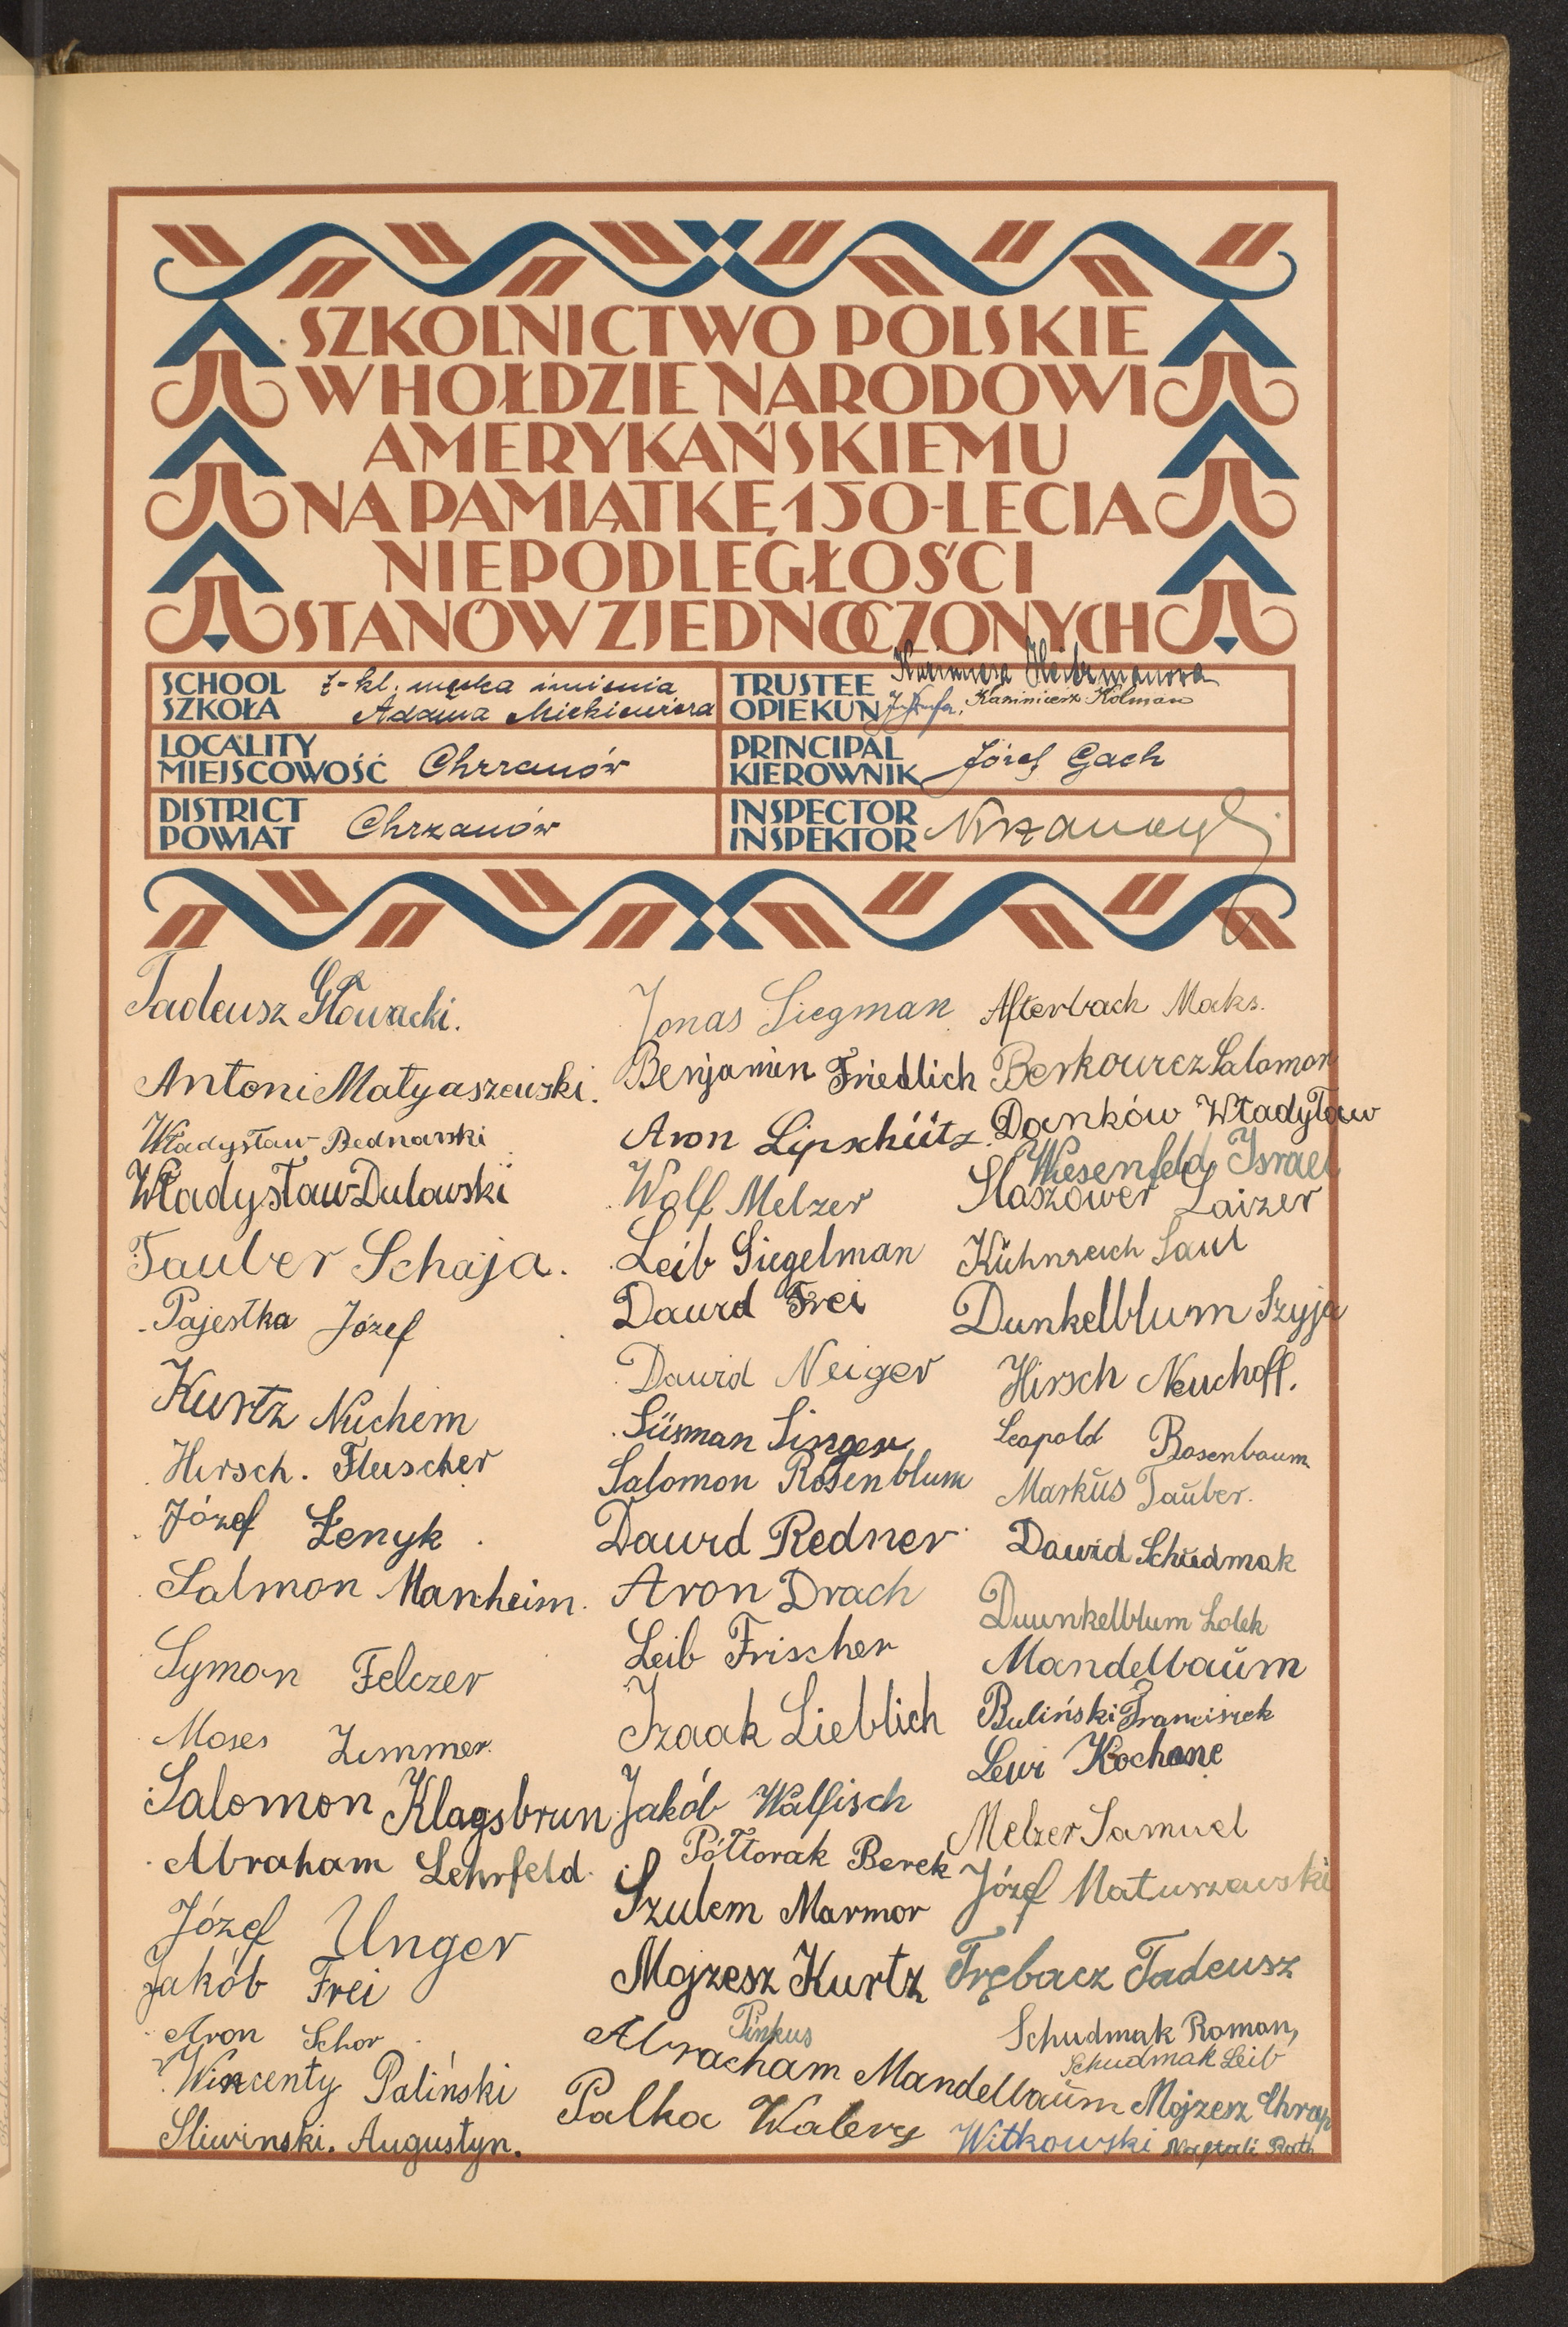 SZKOLNICTWO POLSKIE
W HOŁDZIE NARODOWI
AMERYKAŃSKIEMU
NA PAMIĄTKĘ 150-LECIA
NIEPODLEGŁOŚCI
STANÓW ZJEDNOCZONYCH
SCHOOL
SZKOŁA
7-kl. męska imienia
Adama Mickiewicza
TRUSTEE
OPIEKUN
Kazimierz Kolman
LOCALITY
MIEJSCOWOŚĆ
Chrzanów
PRINCIPAL
KIEROWNIK
Józef Gach
DISTRICT
POWIAT
Chrzanów
INSPECTOR
INSPEKTOR
Tadeusz Głowacki.
Antoni Matyaszewski.
Władysław Bednarski
Władysław Dulowski
Tauber Schaja.
Pajestka Józef
Kurtz Nuchem
Hirsch. Fleischer
Józef Żenyk.
Salmon Manheim.
Symon Felczer
Moses Zimmer.
Salomon Klagsbrun
Abraham Lehrfeld.
Józef Unger
Jakób Frei
Aron Schor
Wincenty Paliński
Sliwinski. Augustyn.
Jonas Siegman
Benjamin Friedlich
Aron Lipschütz.
Wolf Melzer
Leib Siegelman
Dawid Frei
Dawid Neiger
Süsman Singer
Salomon Rosenblum
Dawid Redner
Aron Drach
Leib Frischer
Izaak Lieblich
Jakób Walfisch
Półtorak Berek
Szulem Marmor
Mojzesz Kurtz
Pinkus
Abracham Mandelbaŭm
Palka Walery
Afterbach Maks.
Berkowicz Salomon
Danków Władysław
Wiesenfeld Israel
Staszower Laizer
Kŭhnreich Saul
Dunkelblum Szyja
Hirsch Neuhoff.
Leopold Rosenbaum
Markŭs Taŭber.
Dawid Schŭdmak
Duunkelblum Lolek
Mandelbaŭm
Buliński Franciszek
Lewi Kochane
Melzer Samuel
Józef Matuszewski
Trębacz Tadeusz
Schudmak Roman,
Schudmak Leib
Mojzesz Chrap
Witkowski Naftali Roth